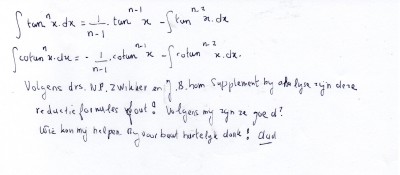 ∫ tanⁿ x.dx = 1/(n-1) . tanⁿ⁻¹ x - ∫ tanⁿ⁻² x.dx
∫ cotanⁿ x.dx = - 1/(n-1) . cotanⁿ⁻¹ x - ∫ cotanⁿ⁻² x.dx.
Volgens drs. W.P. Zwikker en J.B. hom Supplement by analyse zijn deze
reductie formules fout! Volgens my zyn ze goed?
Wie kan my helpen By voor baat hartelyk dank!